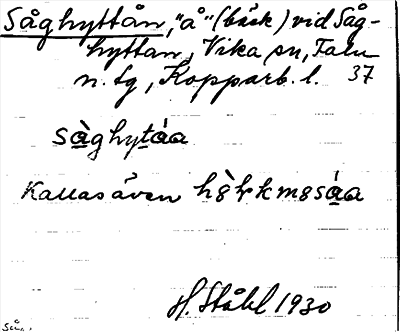 Såghyttån, "å" (bäck) vid Såg-
hyttan, Vika sn, Falu
n. tg, Kopparb. l. 37
sàghytáa
Kallas även hè̀rkmessáa
H. Ståhl 1930